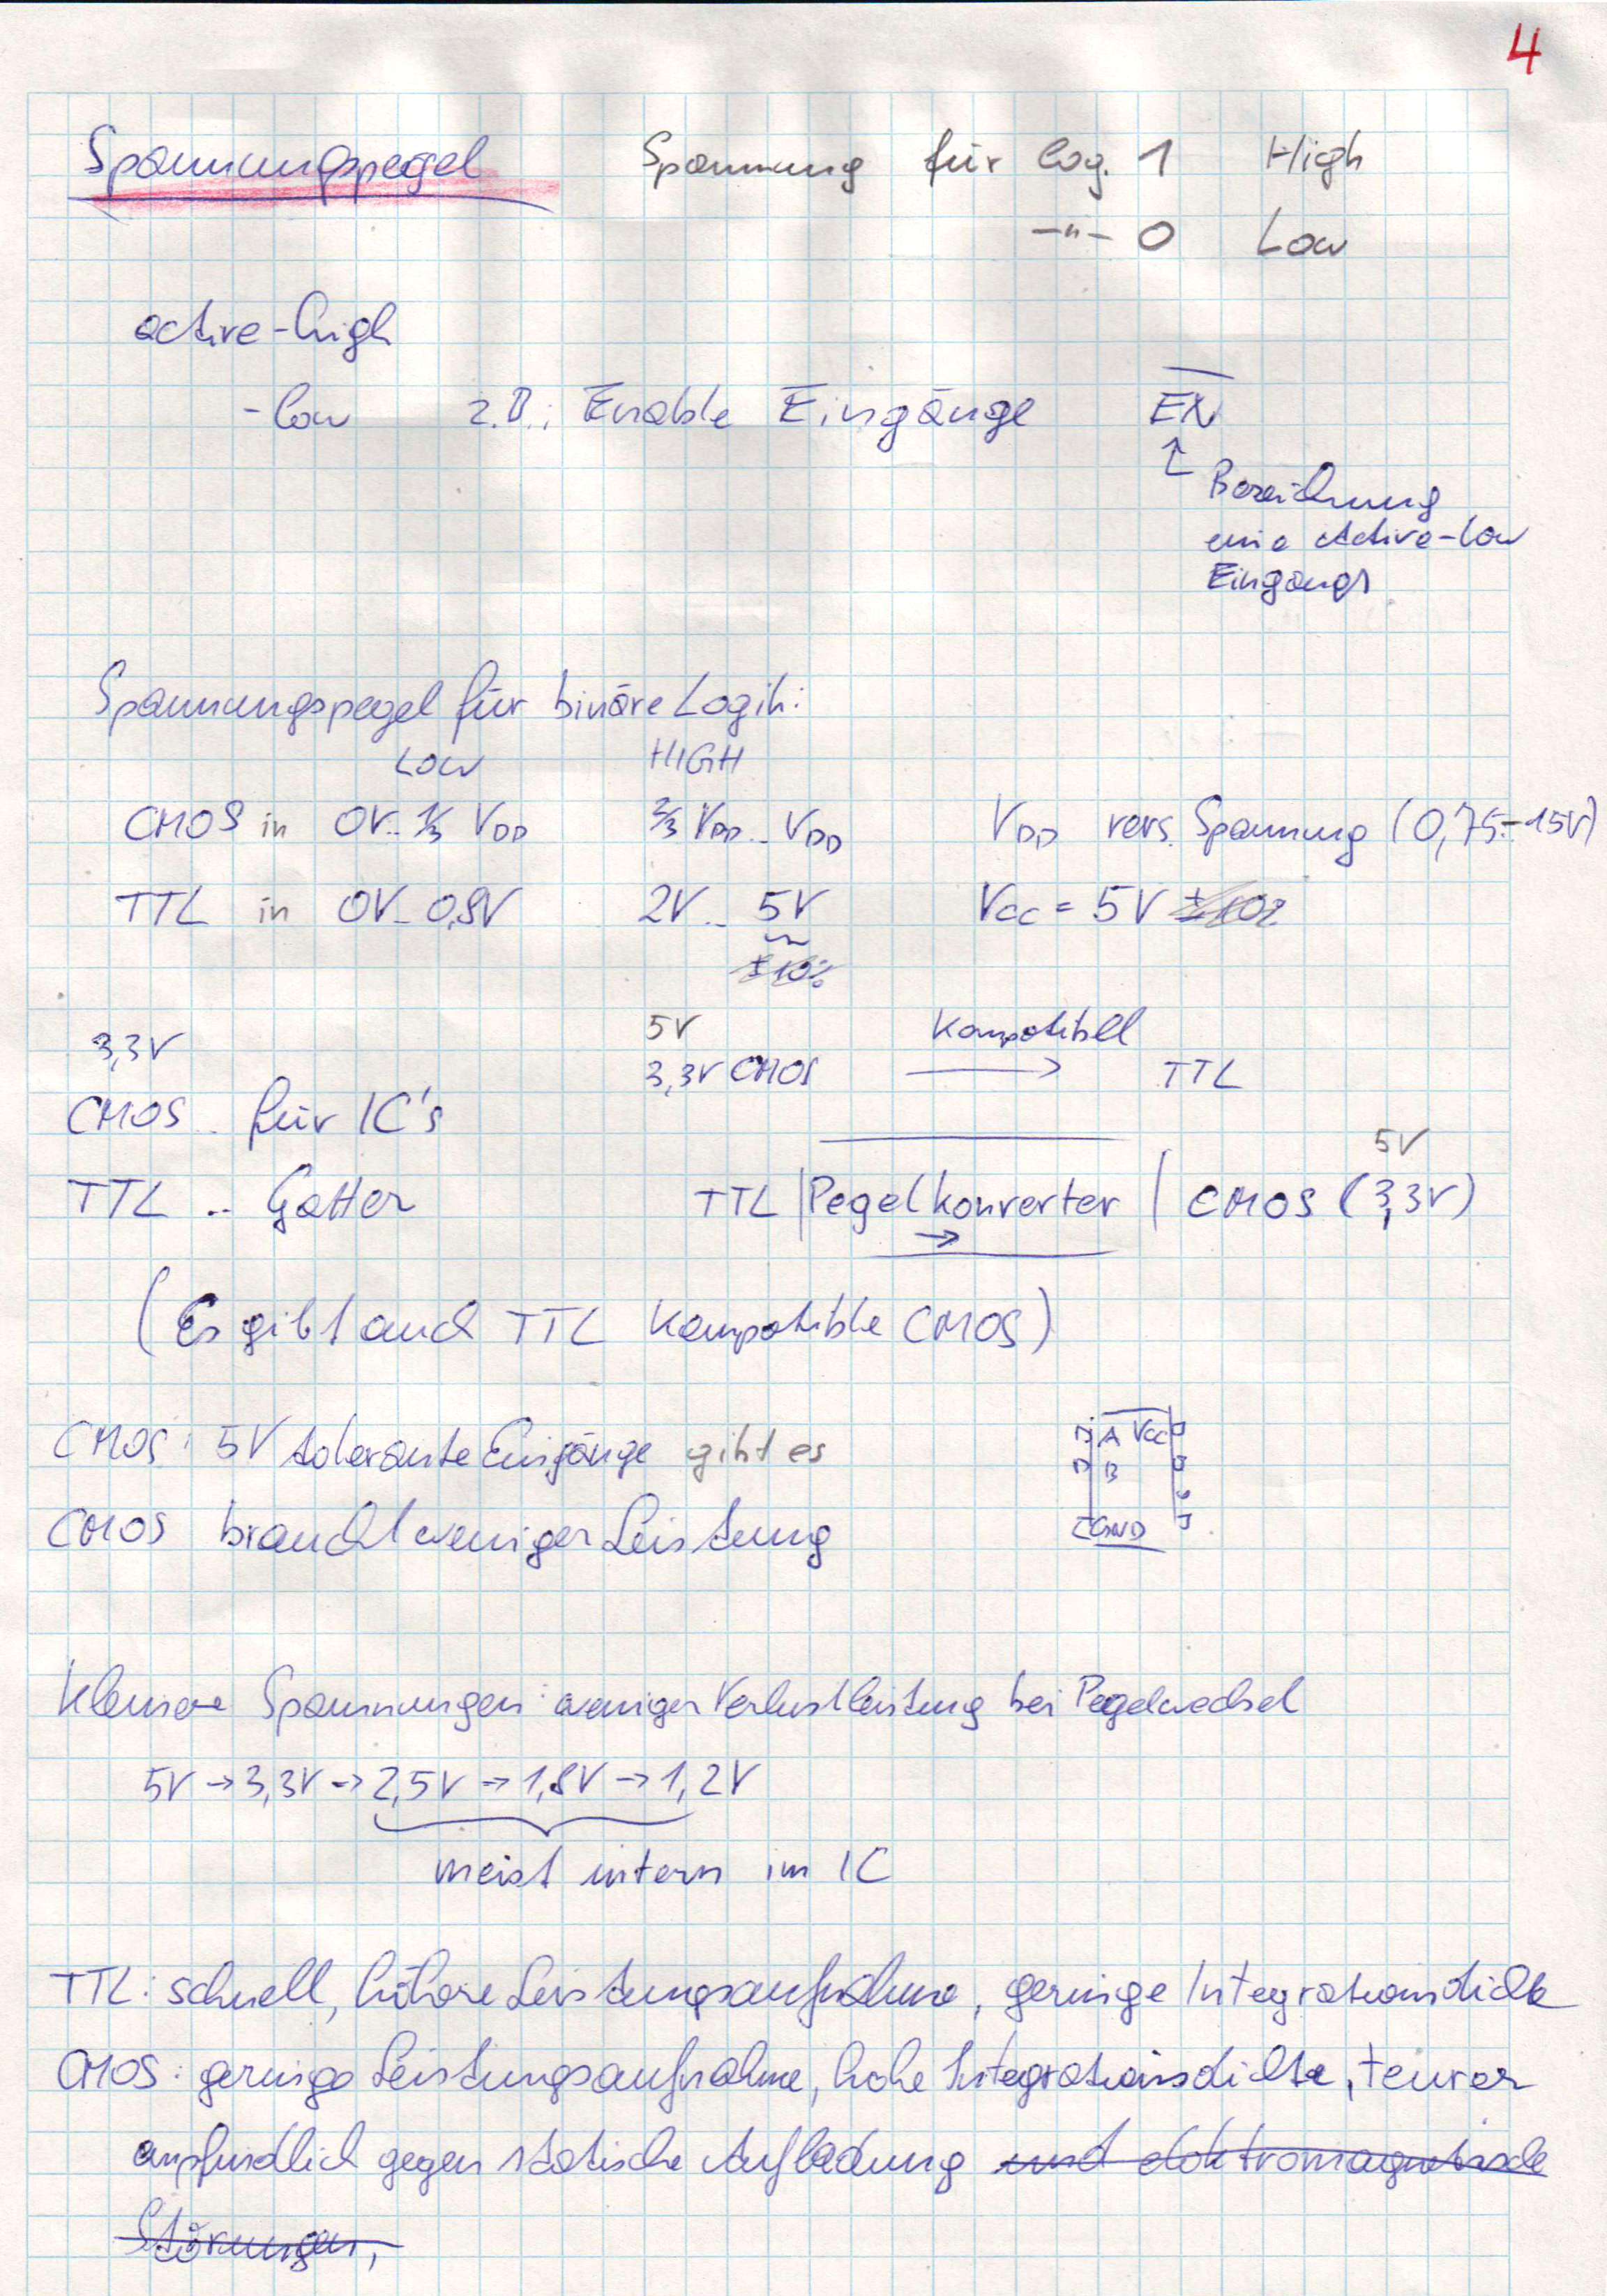 4
Spannungspegel Spannung für log. 1 High
–"– 0 Low
active-high
-low z.B.: Enable Eingänge E̅N̅
↑ Bezeichnung
eine Active-low
Eingangs
Spannungspegel für binäre Logik:
LOW HIGH
CMOS in 0V.. 1/3 VDD 2/3 VDD .. VDD VDD vers. Spannung (0,75 - 15V)
TTL in 0V.. 0,8V 2V .. 5V VCC = 5V ±10%
±10%
3,3V 5V kompatibel
3,3V CMOS → TTL
CMOS .. für IC's
5V
TTL .. Gatter TTL | Pegelkonverter | CMOS (3,3V)
→
(Es gibt auch TTL kompatible CMOS)
CMOS: 5V tolerante Eingänge gibt es
A VCC
B
CMOS braucht weniger Leistung
GND
kleinere Spannungen: weniger Verlustleistung bei Pegelwechsel
5V → 3,3V → 2,5V → 1,8V → 1,2V
meist intern im IC
TTL: schnell, höhere Leistungsaufnahme, geringe Integrationsdichte
CMOS: geringe Leistungsaufnahme, hohe Integrationsdichte, teurer
empfindlich gegen statische Aufladung und elektromagnetische
Störungen,